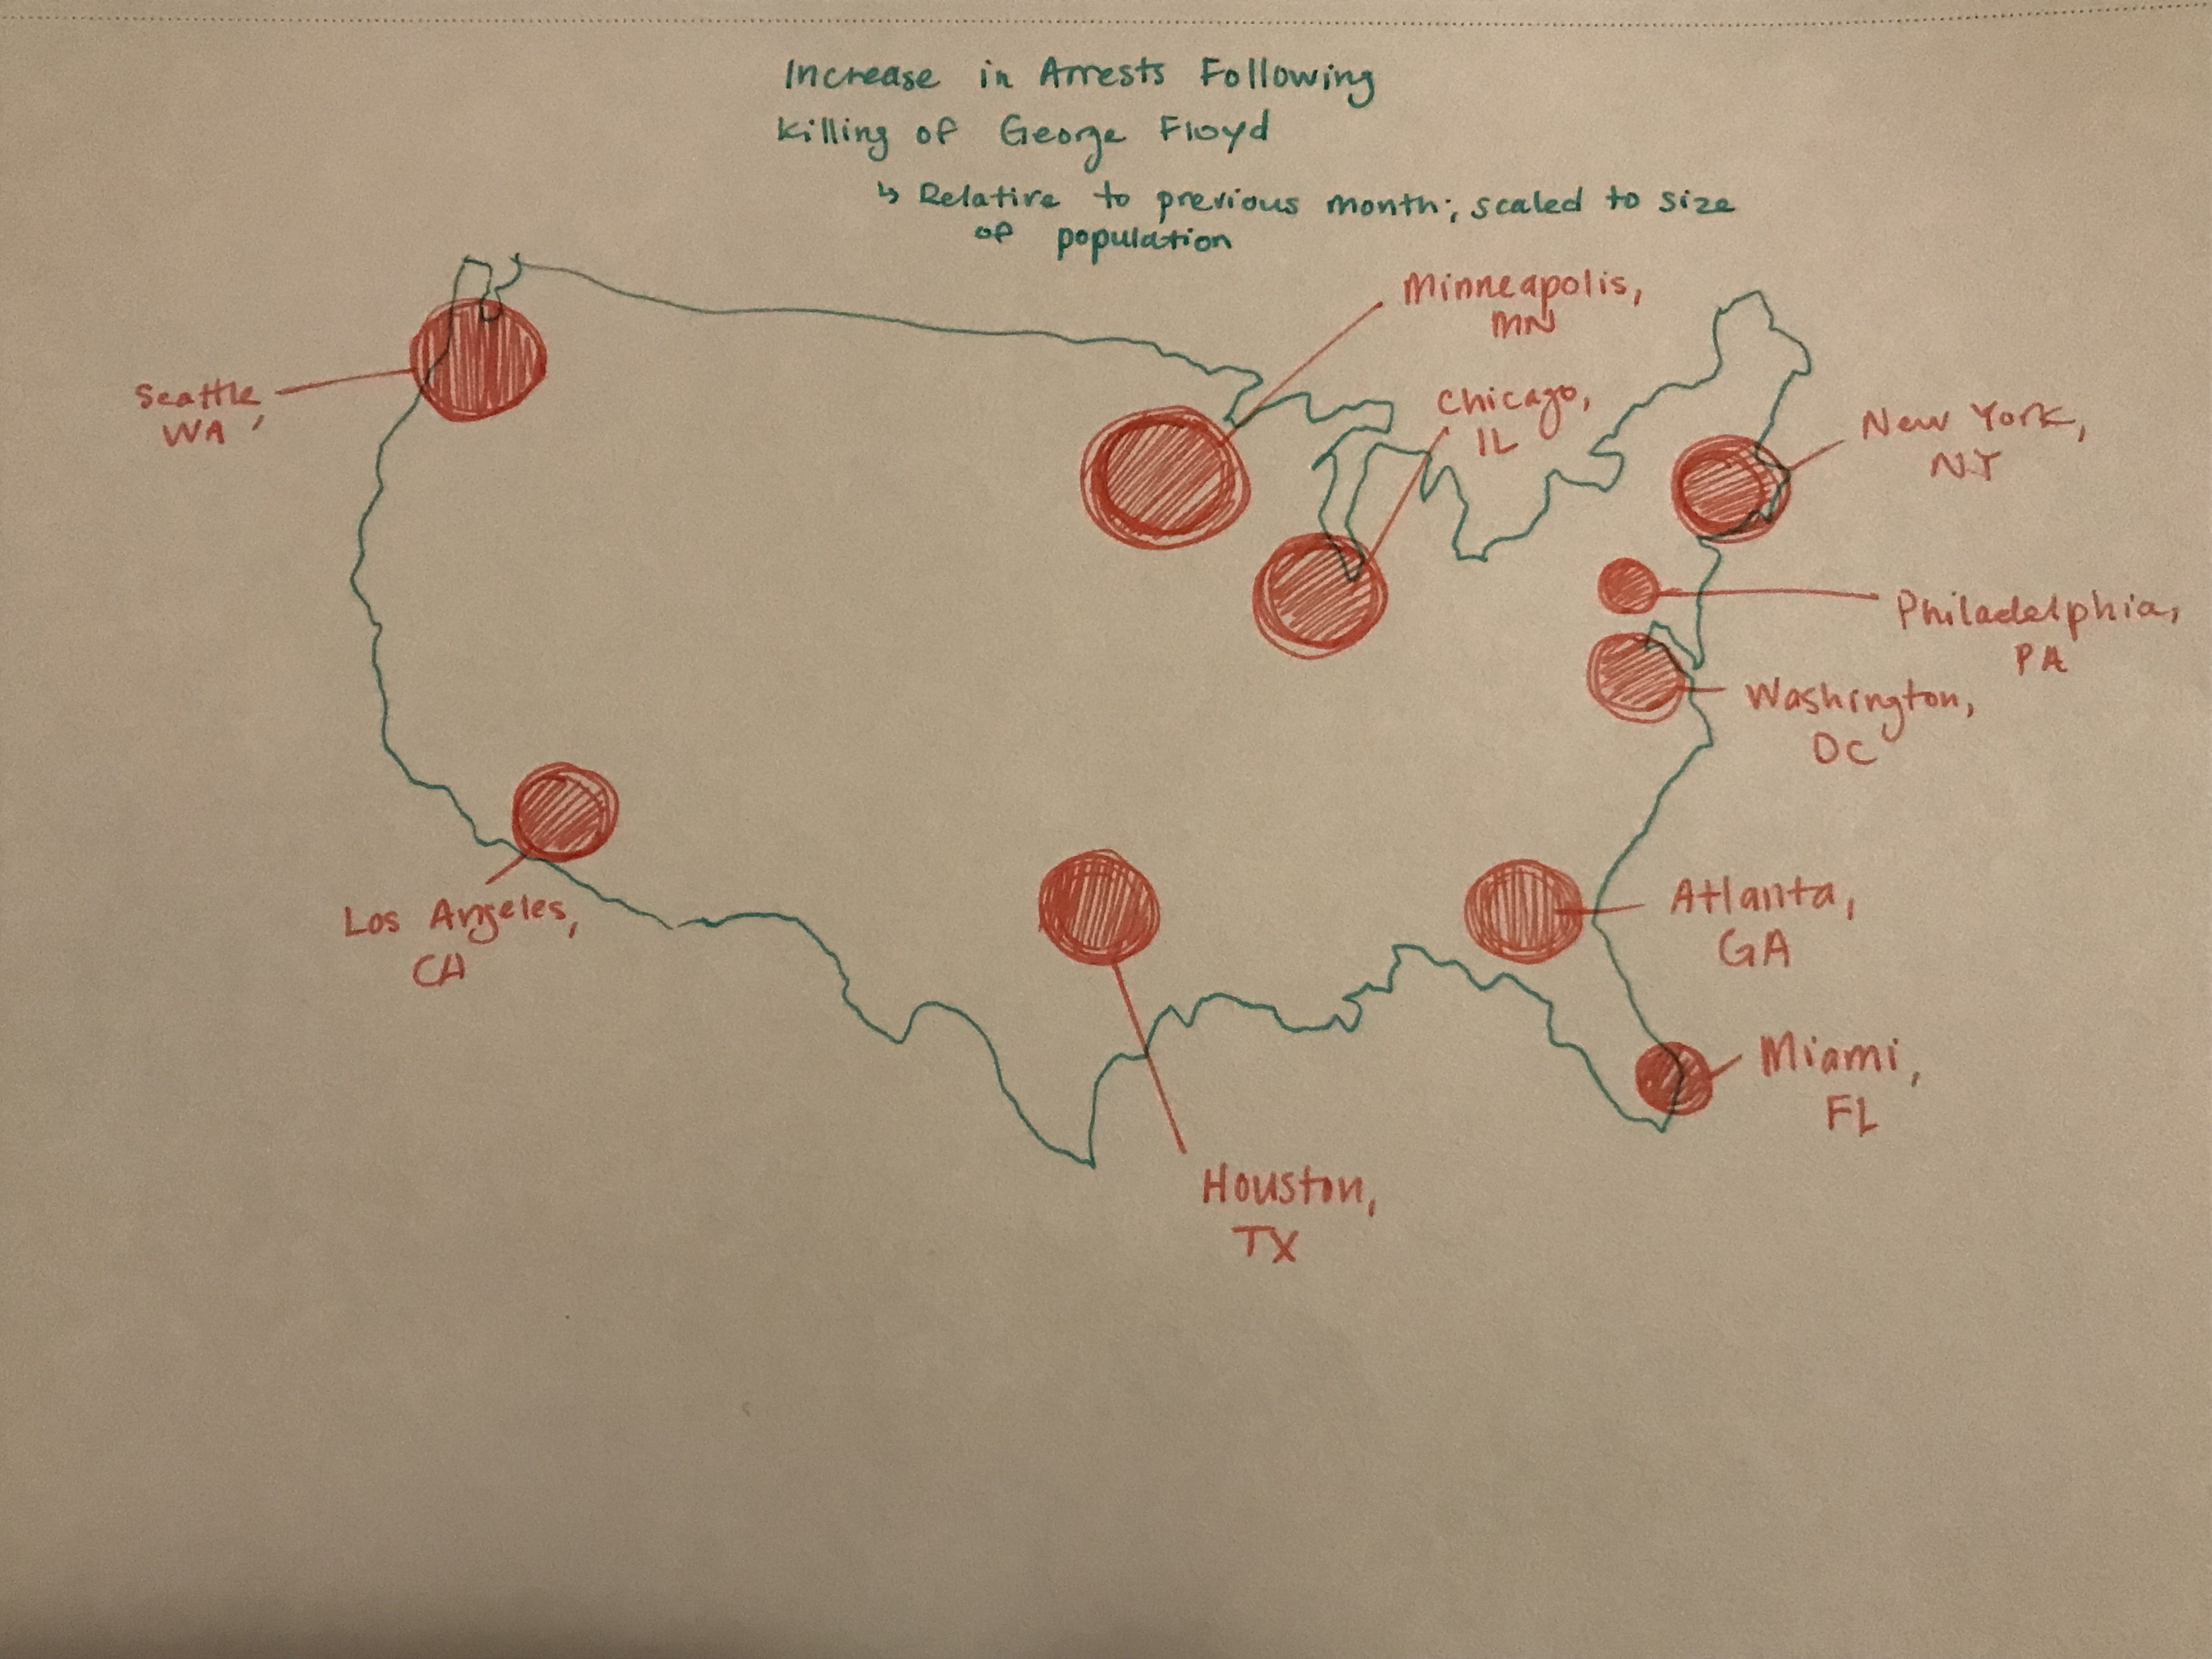 Increase in Arrests Following
Killing of George Floyd
↳ Relative to previous month; scaled to size
of population
Minneapolis,
MN
Chicago,
IL
Seattle,
WA
New York,
NY
Philadelphia,
PA
Washington,
DC
Los Angeles,
CA
Atlanta,
GA
Miami,
FL
Houston,
TX